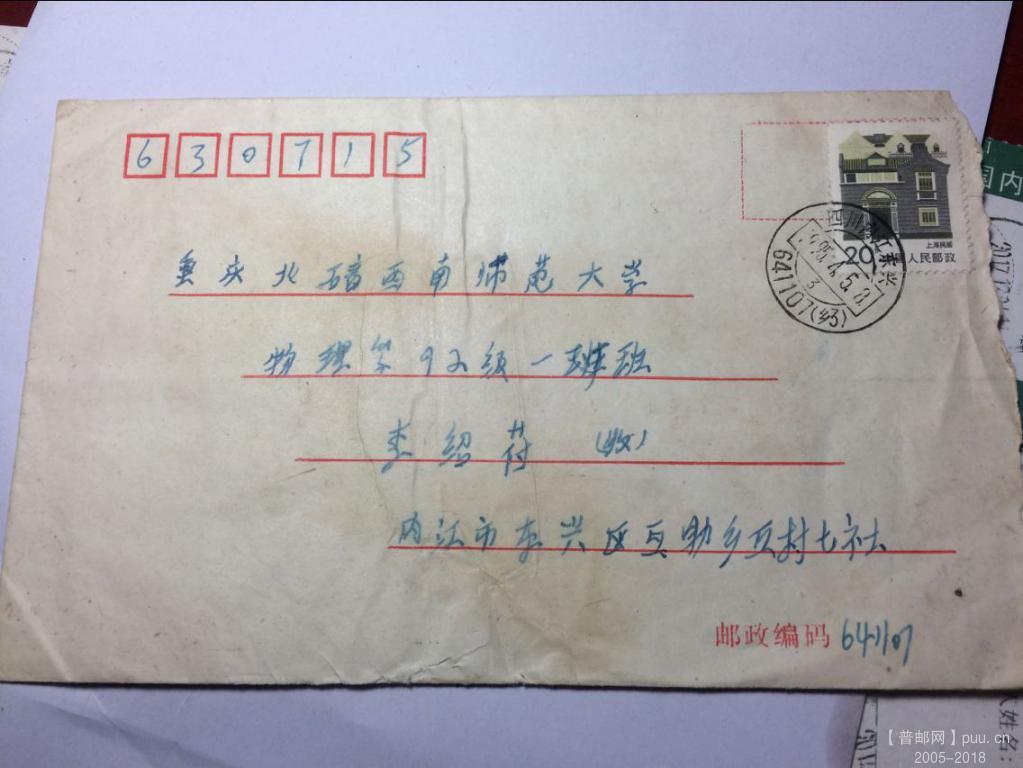 630715
重庆北碚西南师范大学
物理系92级一班
李绍芬 (收)
内江市东兴区互助乡五村七社
邮政编码 641107
上海民居
20
人民邮政
四川内江东兴
95.4.5.8
3
641107(乡3)
国内
姓名:
【普邮网】puu.cn
2005-2018